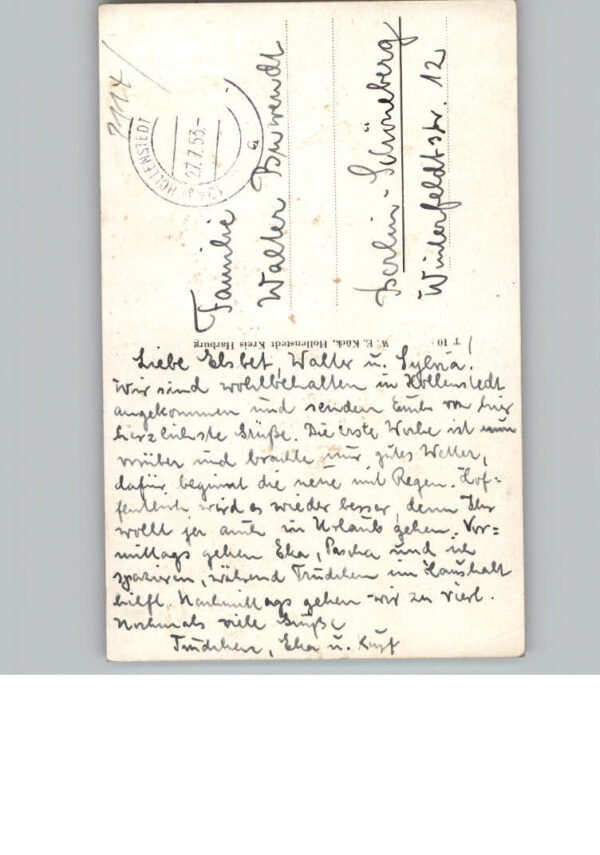 Liebe Elsbet, Walter u. Sylvia!
Wir sind wohlbehalten in Hollenstedt
angekommen und senden Euch von hier
herzlichste Grüße. Die erste Woche ist nun
vorüber und brachte nur gutes Wetter,
dafür beginnt die neue mit Regen. Hof=
fentlich wird es wieder besser, denn Ihr
wollt ja auch in Urlaub gehen. Vor=
mittags gehen Eka, Pascha und ich
spazieren, während Trudchen im Haushalt
hilft. Nachmittags gehen wir zu viert.
Nochmals viele Grüße
Trudchen, Eka u.
Familie
Walter
Berlin-Schöneberg
Winterfeldtstr. 12
HOLLENSTEDT
27.7.53-
a
W. E. Kück, Hollenstedt Kreis Harburg
T 10